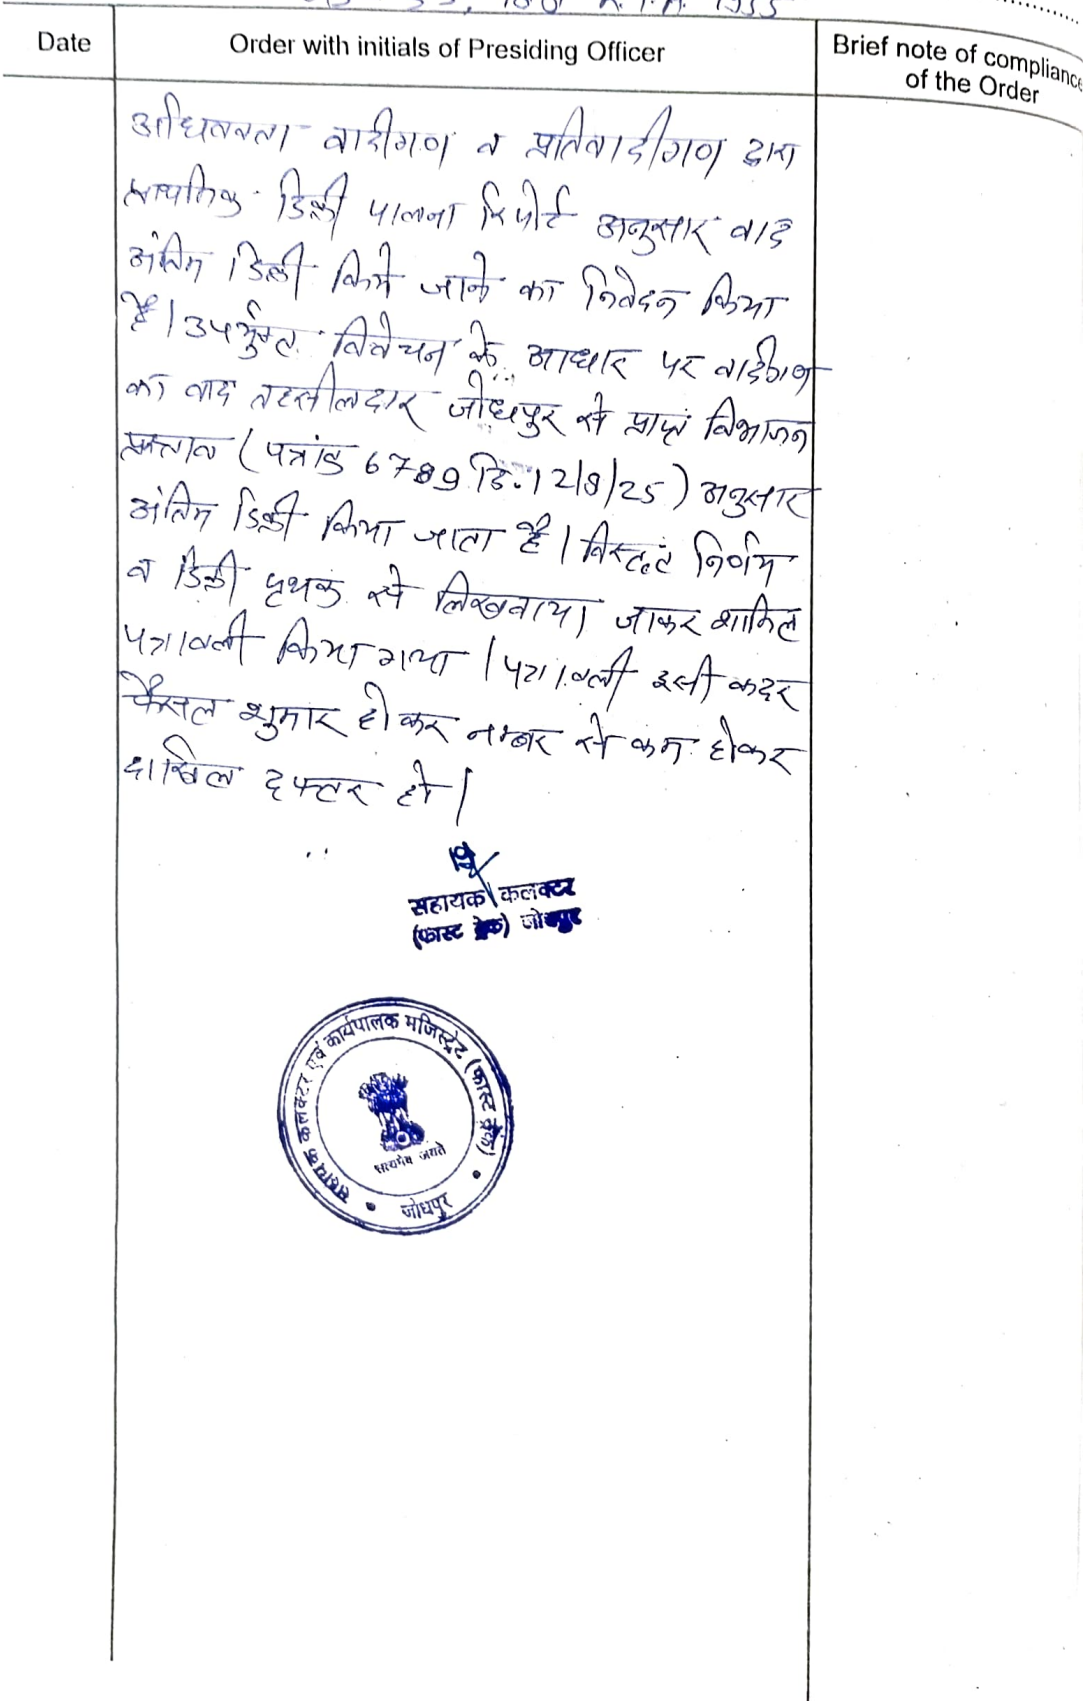 R.T.A. 1955
Date
Order with initials of Presiding Officer
Brief note of compliance
of the Order
अधिवक्ता वादीगण व प्रतिवादीगण द्वारा
प्राथमिक डिक्री पालना रिपोर्ट अनुसार वाद
अंतिम डिक्री किये जाने का निवेदन किया
है। उपर्युक्त विवेचन के आधार पर वादीगण
का वाद तहसीलदार जोधपुर से प्राप्त विभाजन
प्रस्ताव (पत्रांक 6789 दि. 12/8/25) अनुसार
अंतिम डिक्री किया जाता है। विस्तृत निर्णय
व डिक्री पृथक से लिखवाया जाकर शामिल
पत्रावली किया गया। पत्रावली इसी कदर
फैसल शुमार होकर नम्बर से कम होकर
दाखिल दफ्तर हो।
सहायक कलक्टर
(फास्ट ट्रेक) जोधपुर
सहायक कलक्टर एवं कार्यपालक मजिस्ट्रेट (फास्ट ट्रेक)
सत्यमेव जयते
जोधपुर